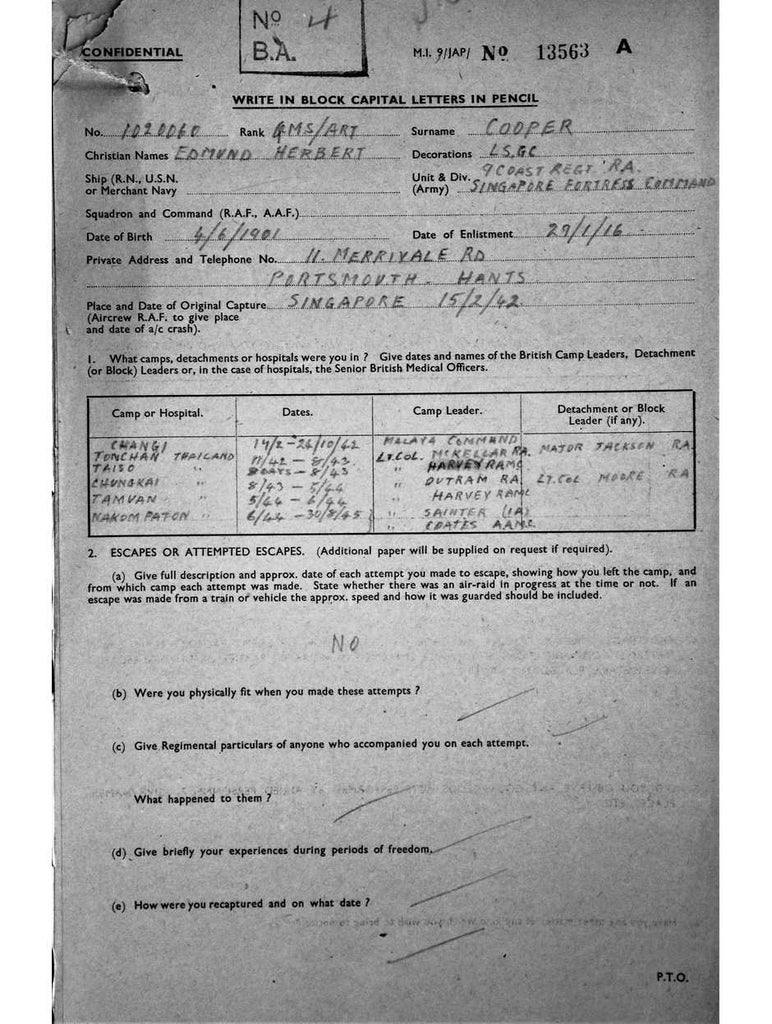 No 4
B.A.
CONFIDENTIAL
M.I. 9/JAP/ No 13563 A
WRITE IN BLOCK CAPITAL LETTERS IN PENCIL
No. 1020060 Rank QMS/ART Surname COOPER
Christian Names EDMUND HERBERT Decorations LS,GC
Ship (R.N., U.S.N. or Merchant Navy
Unit & Div. (Army) 9 COAST REGT RA. SINGAPORE FORTRESS COMMAND
Squadron and Command (R.A.F., A.A.F.)
Date of Birth 4/6/1901 Date of Enlistment 29/1/16
Private Address and Telephone No. 11. MERRIVALE RD
PORTSMOUTH. HANTS
Place and Date of Original Capture SINGAPORE 15/2/42
(Aircrew R.A.F. to give place
and date of a/c crash).
1. What camps, detachments or hospitals were you in ? Give dates and names of the British Camp Leaders, Detachment
(or Block) Leaders or, in the case of hospitals, the Senior British Medical Officers.
Camp or Hospital. Dates. Camp Leader. Detachment or Block Leader (if any).
CHANGI 17/2 - 26/10/42 MALAYA COMMAND
TONCHAN THAILAND 11/42 - 8/43 LT.COL. MCKELLAR RA. MAJOR JACKSON RA
TAISO " 8 DAYS - 8/43 " HARVEY RAMC
CHUNGKAI " 8/43 - 5/44 " OUTRAM RA LT.COL MOORE RA
TAMUAN " 5/44 - 6/44 " HARVEY RAMC
NAKOM PATON " 6/44 - 30/8/45 " SAINTER (IA)
" COATES AAMC
2. ESCAPES OR ATTEMPTED ESCAPES. (Additional paper will be supplied on request if required).
(a) Give full description and approx. date of each attempt you made to escape, showing how you left the camp, and
from which camp each attempt was made. State whether there was an air-raid in progress at the time or not. If an
escape was made from a train or vehicle the approx. speed and how it was guarded should be included.
NO
(b) Were you physically fit when you made these attempts ?
(c) Give Regimental particulars of anyone who accompanied you on each attempt.
What happened to them ?
(d) Give briefly your experiences during periods of freedom.
(e) How were you recaptured and on what date ?
P.T.O.